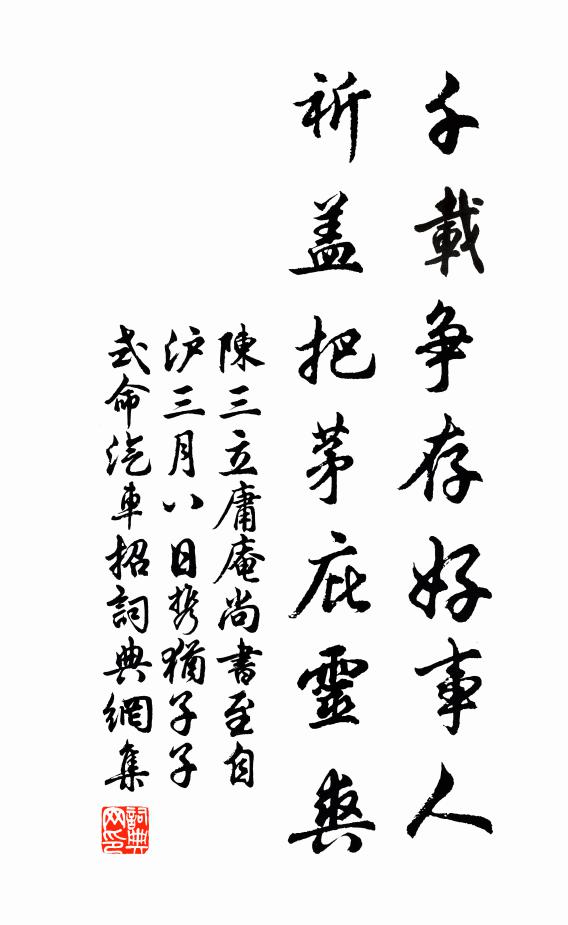 千載争存好事人
祈盖把茅庇靈爽
陳三立庸庵尚書至自
沪三月八日携猶子子
式命汽車招詞典網集
詞典
网印